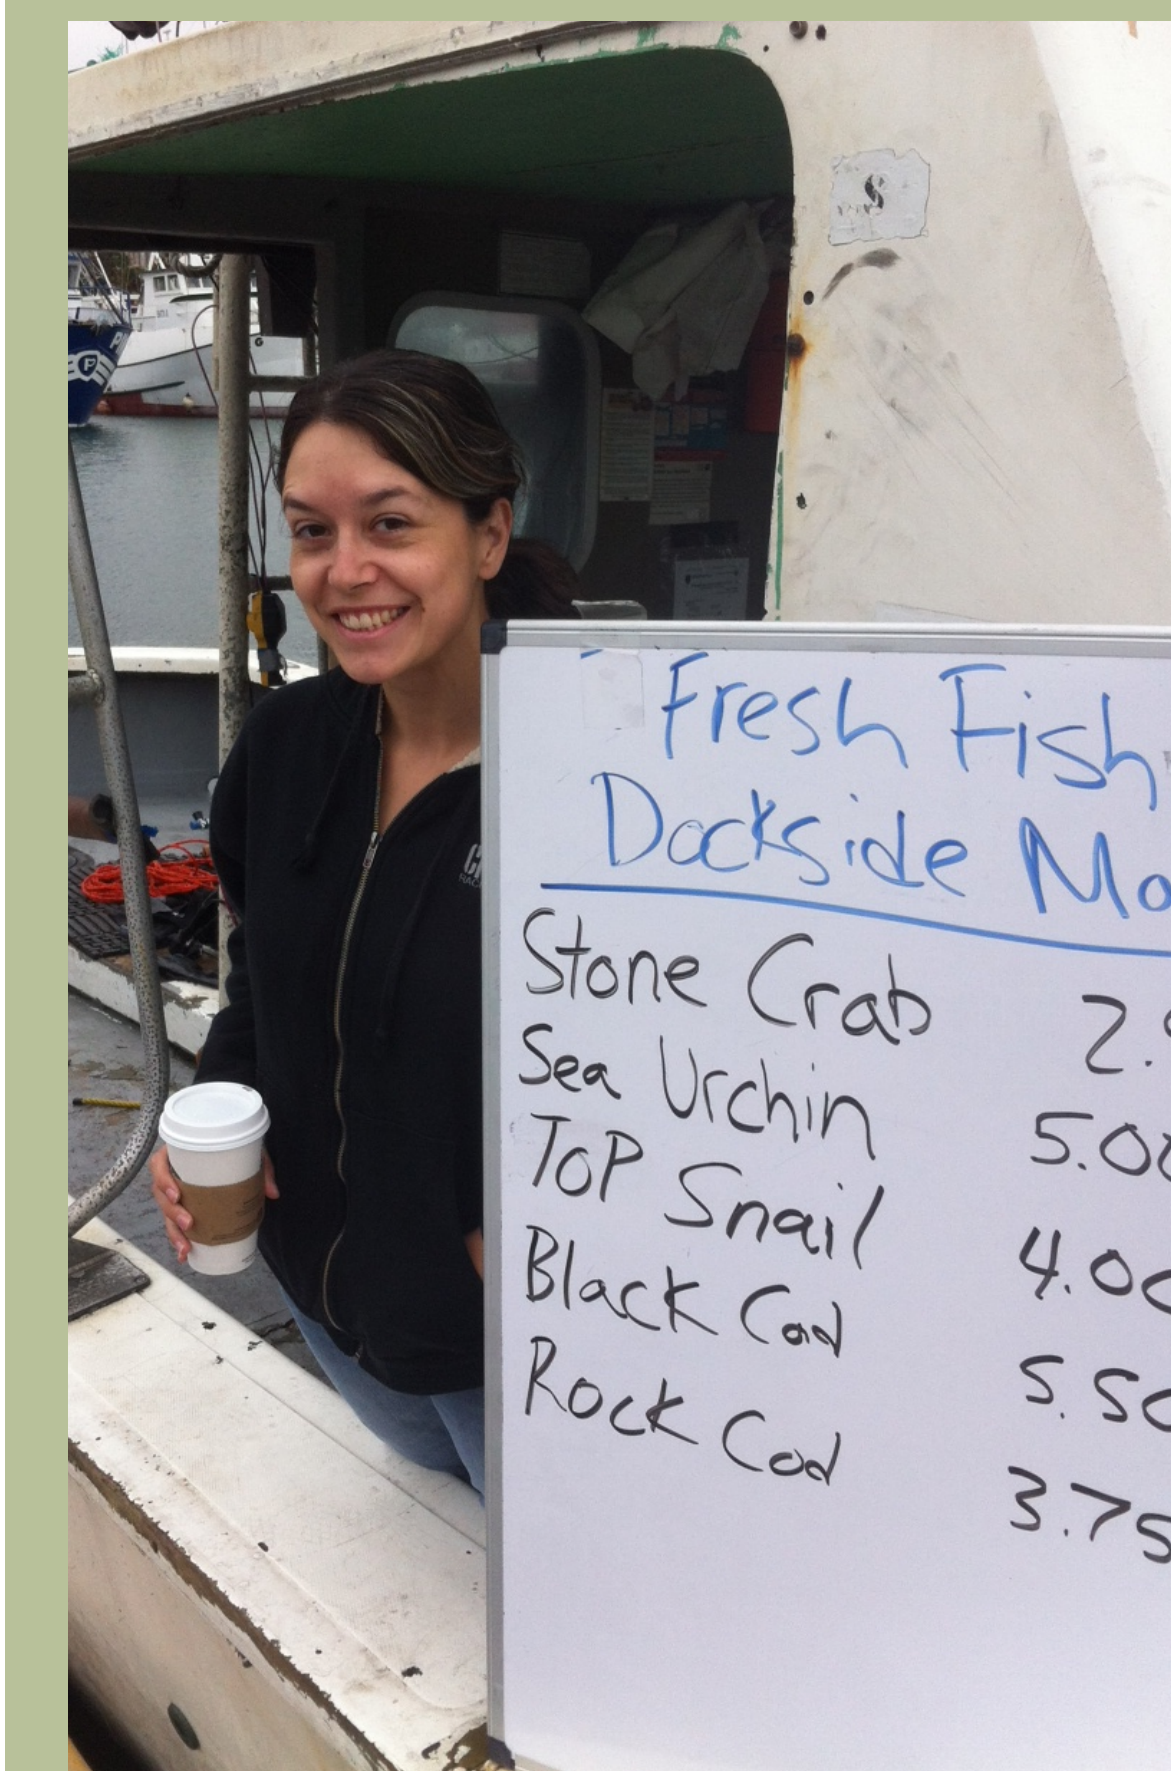 S
Fresh Fish
Dockside Ma
Stone Crab 2.9
Sea Urchin 5.00
TOP Snail 4.00
Black Cod 5.50
Rock Cod 3.75